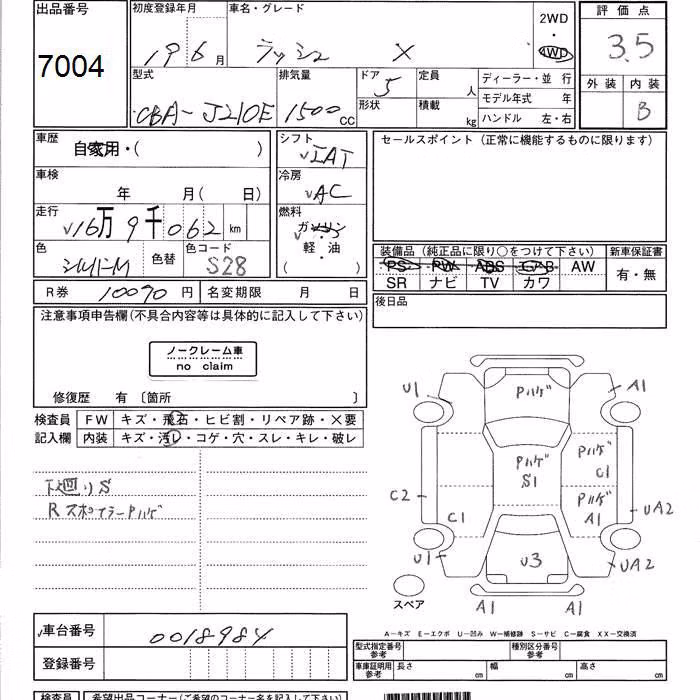 出品番号
7004
初度登録年月
19年6月
車名・グレード
ラッシュ X
2WD
・
4WD
評価点
3.5
外装 内装
B
型式
CBA-J210E
排気量
1500cc
ドア 5
形状
定員 人
積載 kg
ディーラー・並行
モデル年式 年
ハンドル 左・右
車歴
自家用・( )
シフト
IAT
セールスポイント (正常に機能するものに限ります)
車検
年 月( 日)
冷房
AC
走行
16万9千062km
燃料
ガソリン
軽・油
( )
色
シルバーM
色替
色コード
S28
装備品 (純正品に限り○をつけて下さい)
PS PW ABS エアB AW
SR ナビ TV カワ
新車保証書
有・無
R券 10090円
名変期限 月 日
後日品
注意事項申告欄(不具合内容等は具体的に記入して下さい)
ノークレーム車
no claim
修復歴 有 〔箇所 〕
検査員
記入欄
FW キズ・飛石・ヒビ割・リペア跡・X要
内装 キズ・汚レ・コゲ・穴・スレ・キレ・破レ
下廻りS
RスポイラーPハゲ
U1
Pハゲ
A1
Pハゲ
S1
Pハゲ
C1
C2
C1
Pハゲ
A1
UA2
U1
U3
UA2
A1
A1
スペア
A-キズ E-エクボ U-凹み W-補修跡 S-サビ C-腐食 XX-交換済
車台番号
0018984
登録番号
型式指定番号
参考
種別区分番号
参考
車庫証明用
参考
長さ cm
幅 cm
高さ cm
検査員
希望出品コーナー(ご希望のコーナー名を記入下さい)